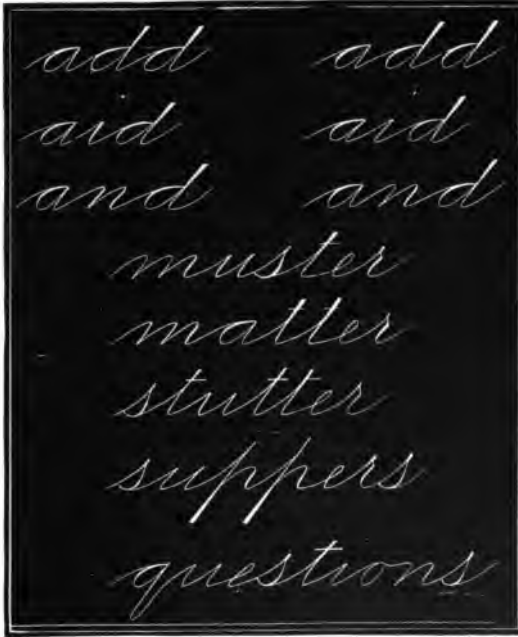 add add
aid aid
and and
muster
matter
stutter
suppers
questions